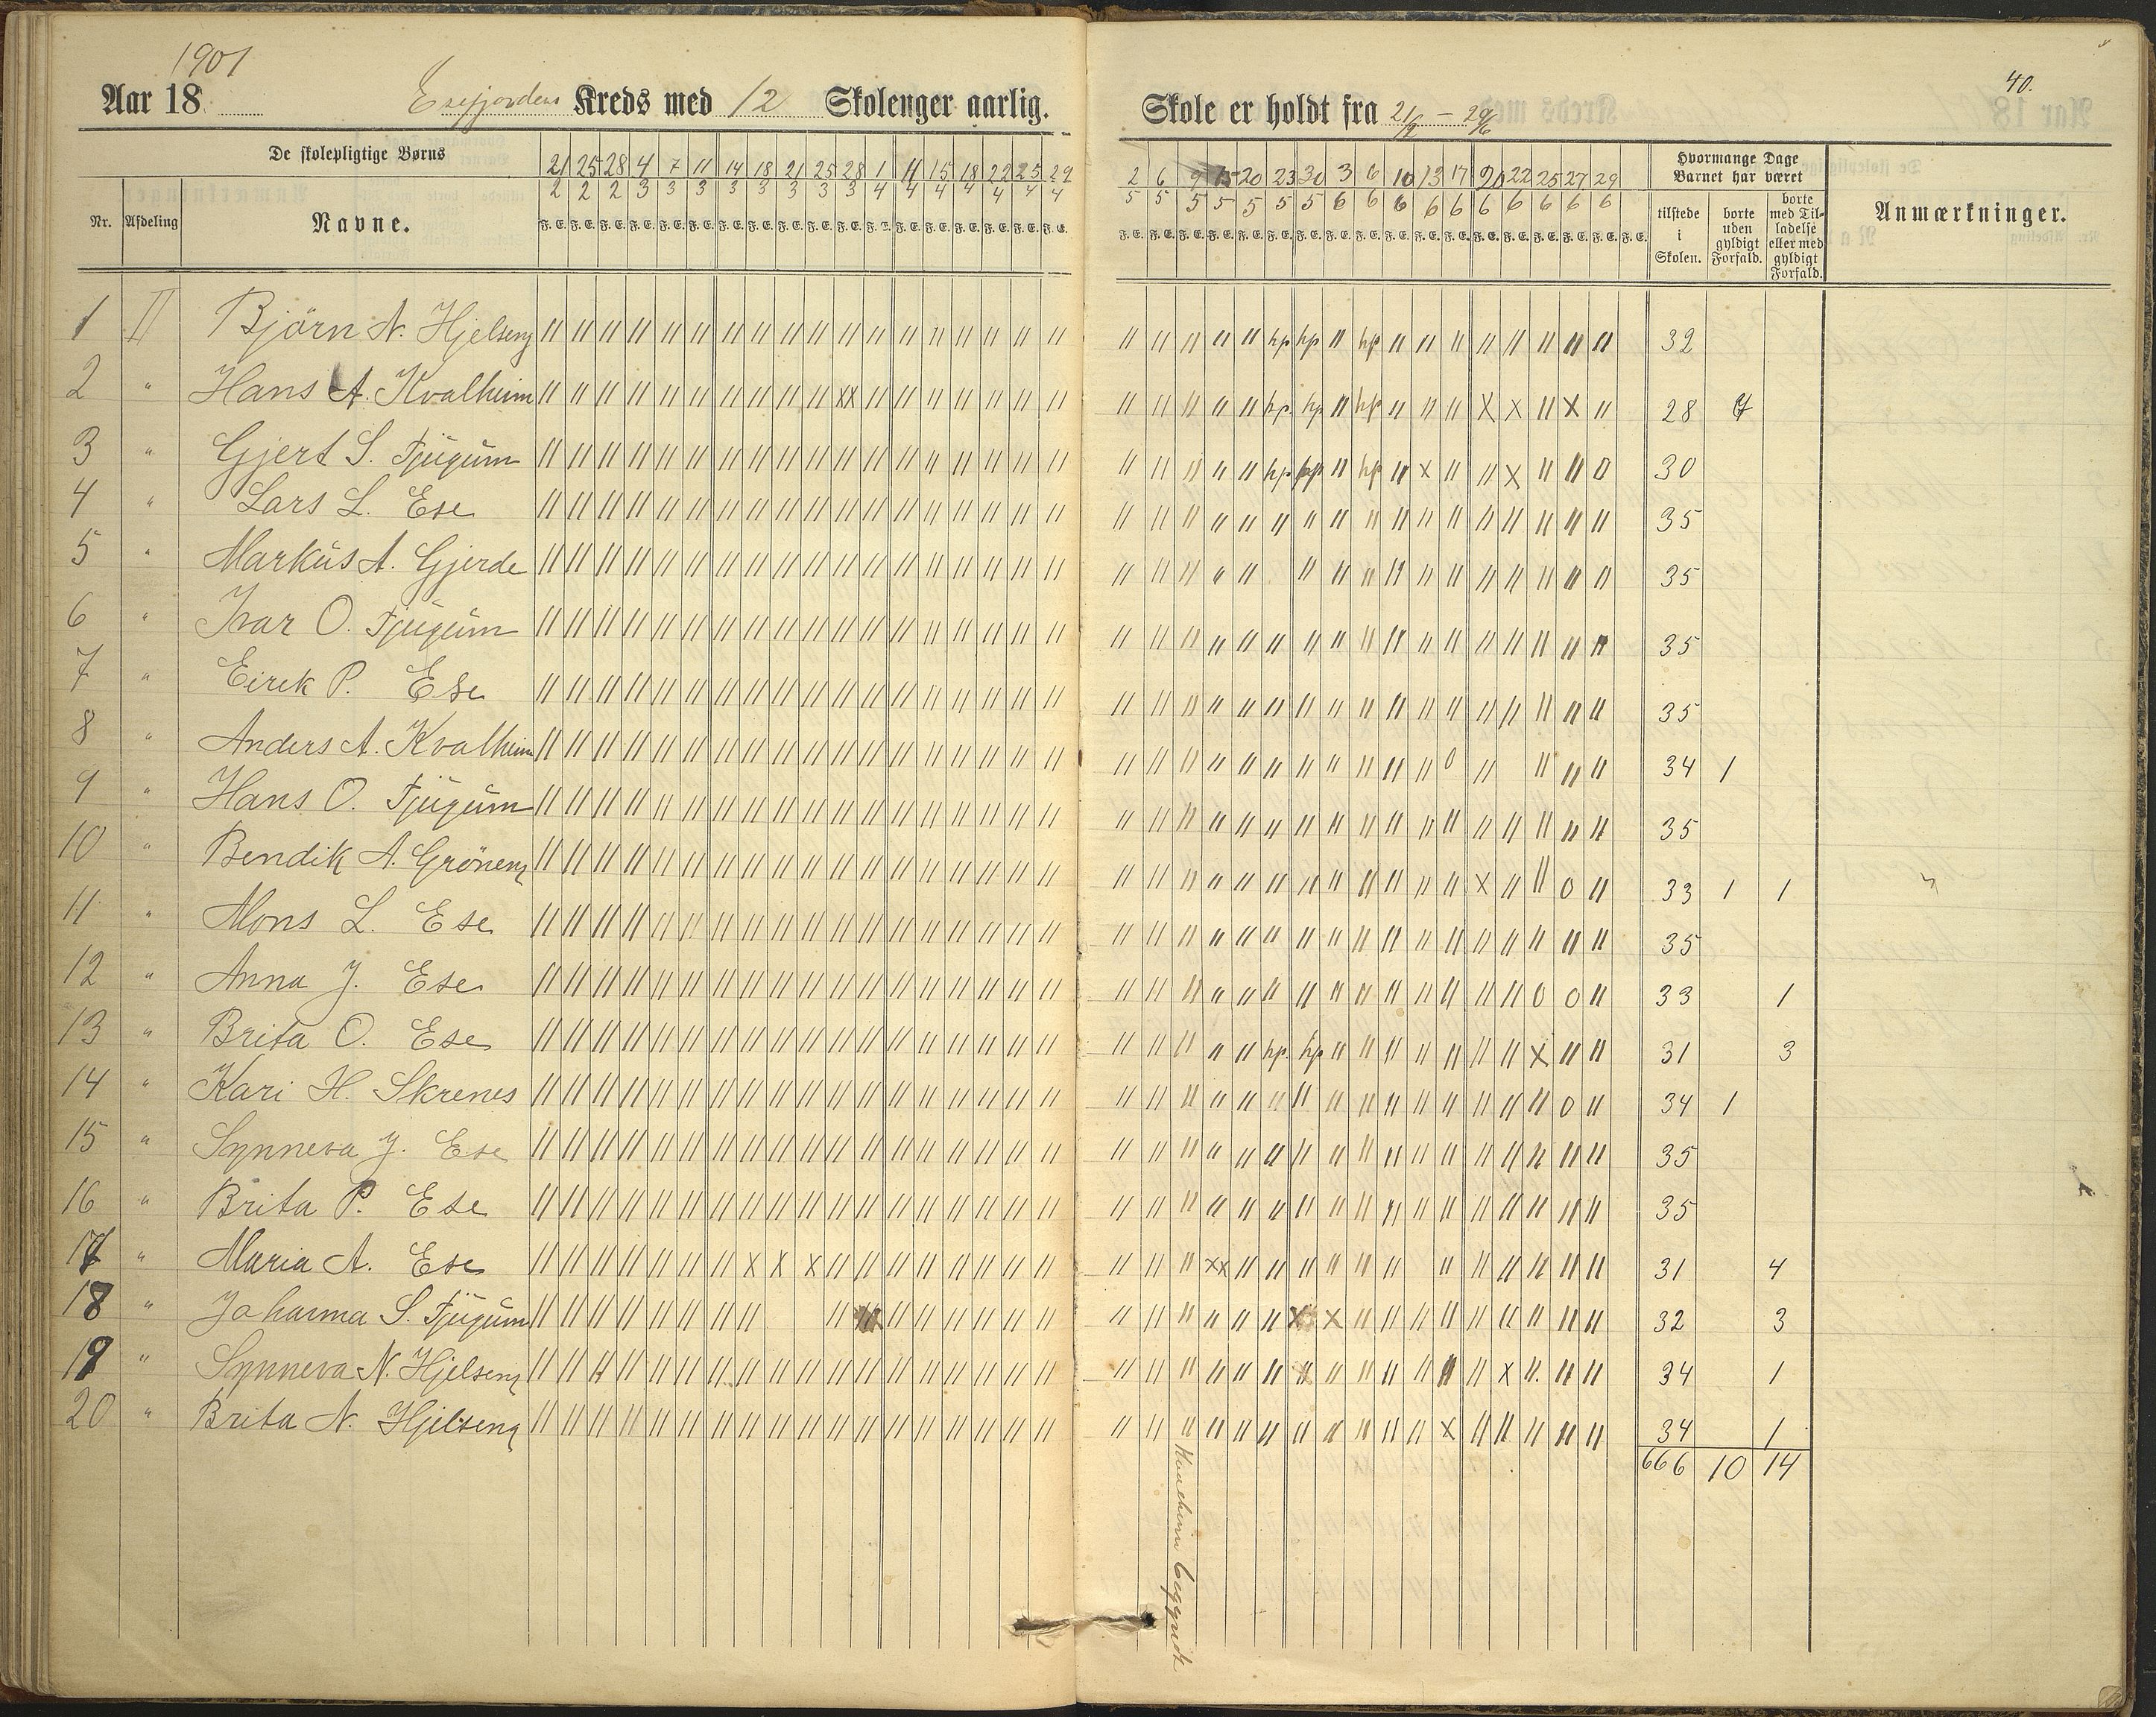 1901
40.
Aar 18 Esefjordens Kreds med 12 Skolenger aarlig. Skole er holdt fra 21/2 – 29/6
De skolepligtige Børns
Nr. Afdeling Navne.
21 25 28 4 7 11 14 18 21 25 28 1 11 15 18 22 25 29
2 2 2 3 3 3 3 3 3 3 3 4 4 4 4 4 4 4
2 6 9 15 20 23 30 3 6 10 13 17 20 22 25 27 29
5 5 5 5 5 5 5 6 6 6 6 6 6 6 6 6 6
F. E. F. E. F. E. F. E. F. E. F. E. F. E. F. E. F. E. F. E. F. E. F. E. F. E. F. E. F. E. F. E. F. E. F. E.
Hvormange Dage Barnet har været
tilstede i Skolen.
borte uden gyldigt Forfald.
borte med Tilladelse eller med gyldigt Forfald.
Anmærkninger.
1 II Björn N. Hjelseng hp hp hp 32
2 " Hans A. Kvalheim xx hp hp hp x x x 28
3 " Gjert S. Tjugum hp hp hp x x 0 30
4 " Lars L. Ese 35
5 " Markus A. Gjerde 35
6 " Ivar O. Tjugum 35
7 " Eirik P. Ese 35
8 " Anders A. Kvalheim 0 34 1
9 " Hans O. Tjugum 35
10 " Bendik A. Gröneng x 0 33 1 1
11 " Mons L. Ese 35
12 " Anna J. Ese 0 0 33 1
13 " Brita O. Ese hp. hp x 31 3
14 " Kari H. Skrenes 0 34 1
15 " Synneva J. Ese 35
16 " Brita P. Ese 35
17 " Maria A. Ese x x x xx 31 4
18 " Johanna S. Tjugum x x 32 3
19 " Synneva N. Hjelseng x x 34 1
20 " Brita N. Hjelseng x 34 1
666 10 14
begyndt